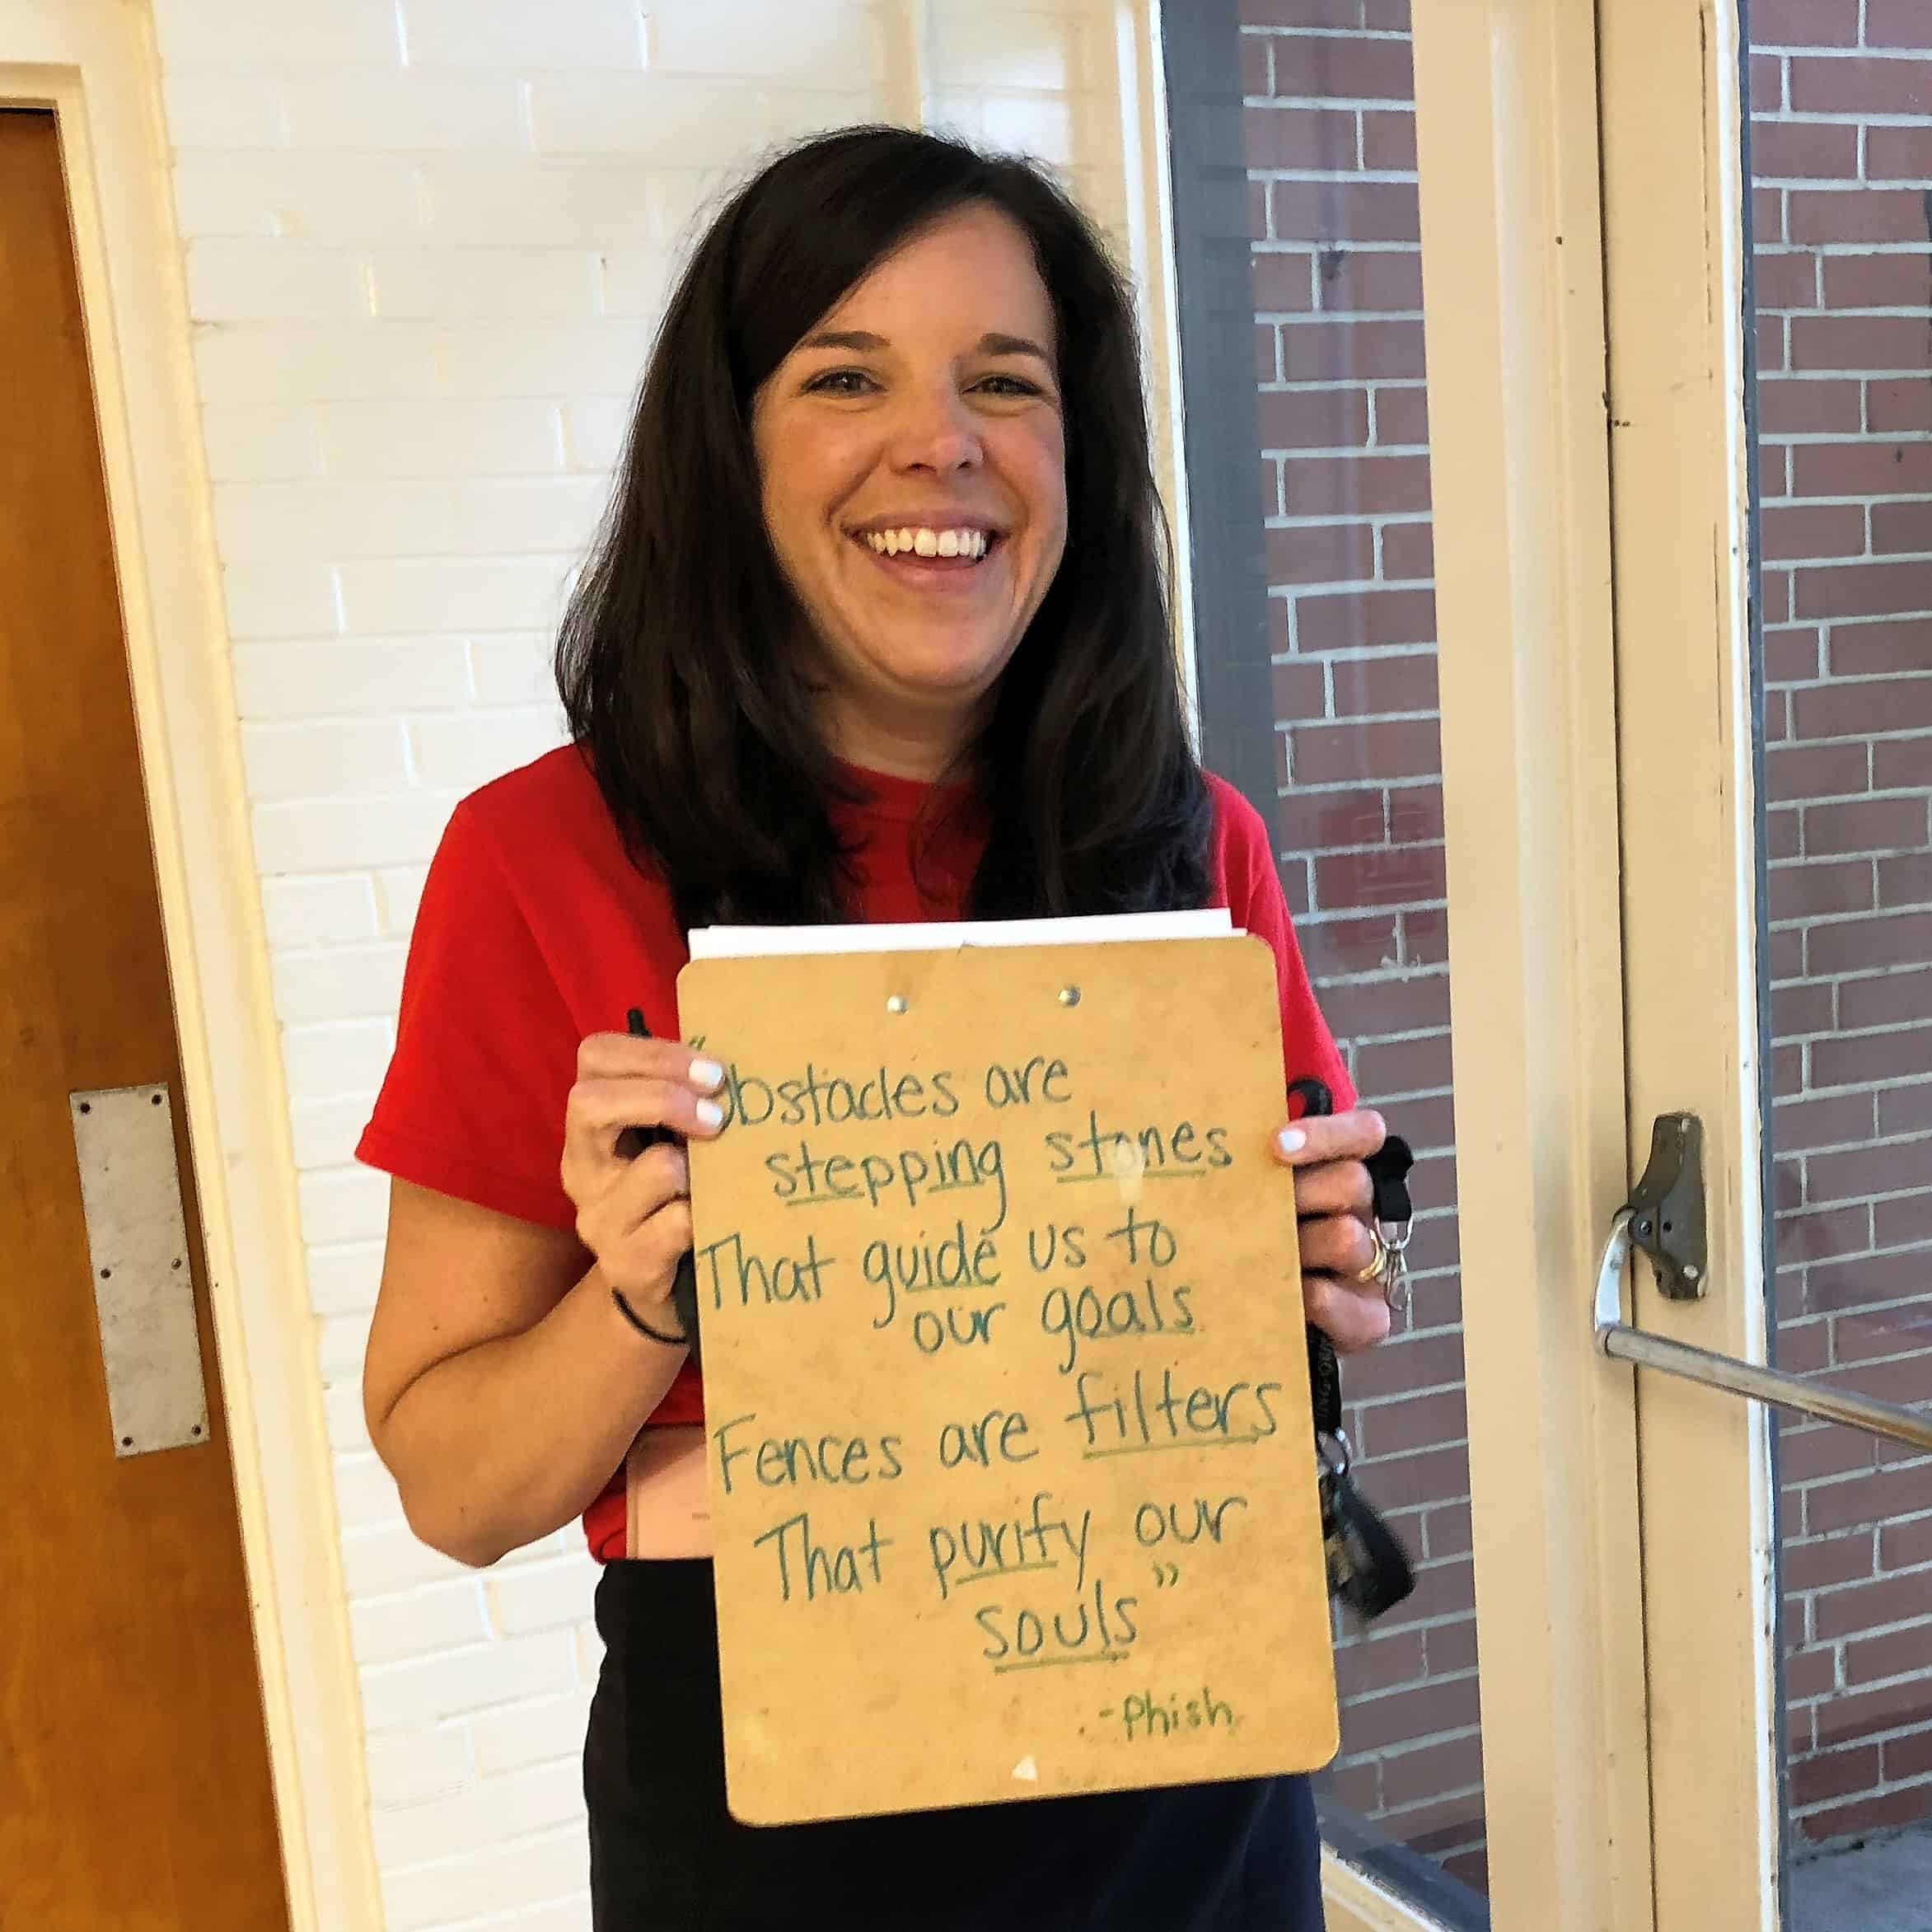 "Obstacles are
stepping stones
That guide us to
our goals
Fences are filters
That purify our
souls"
-Phish